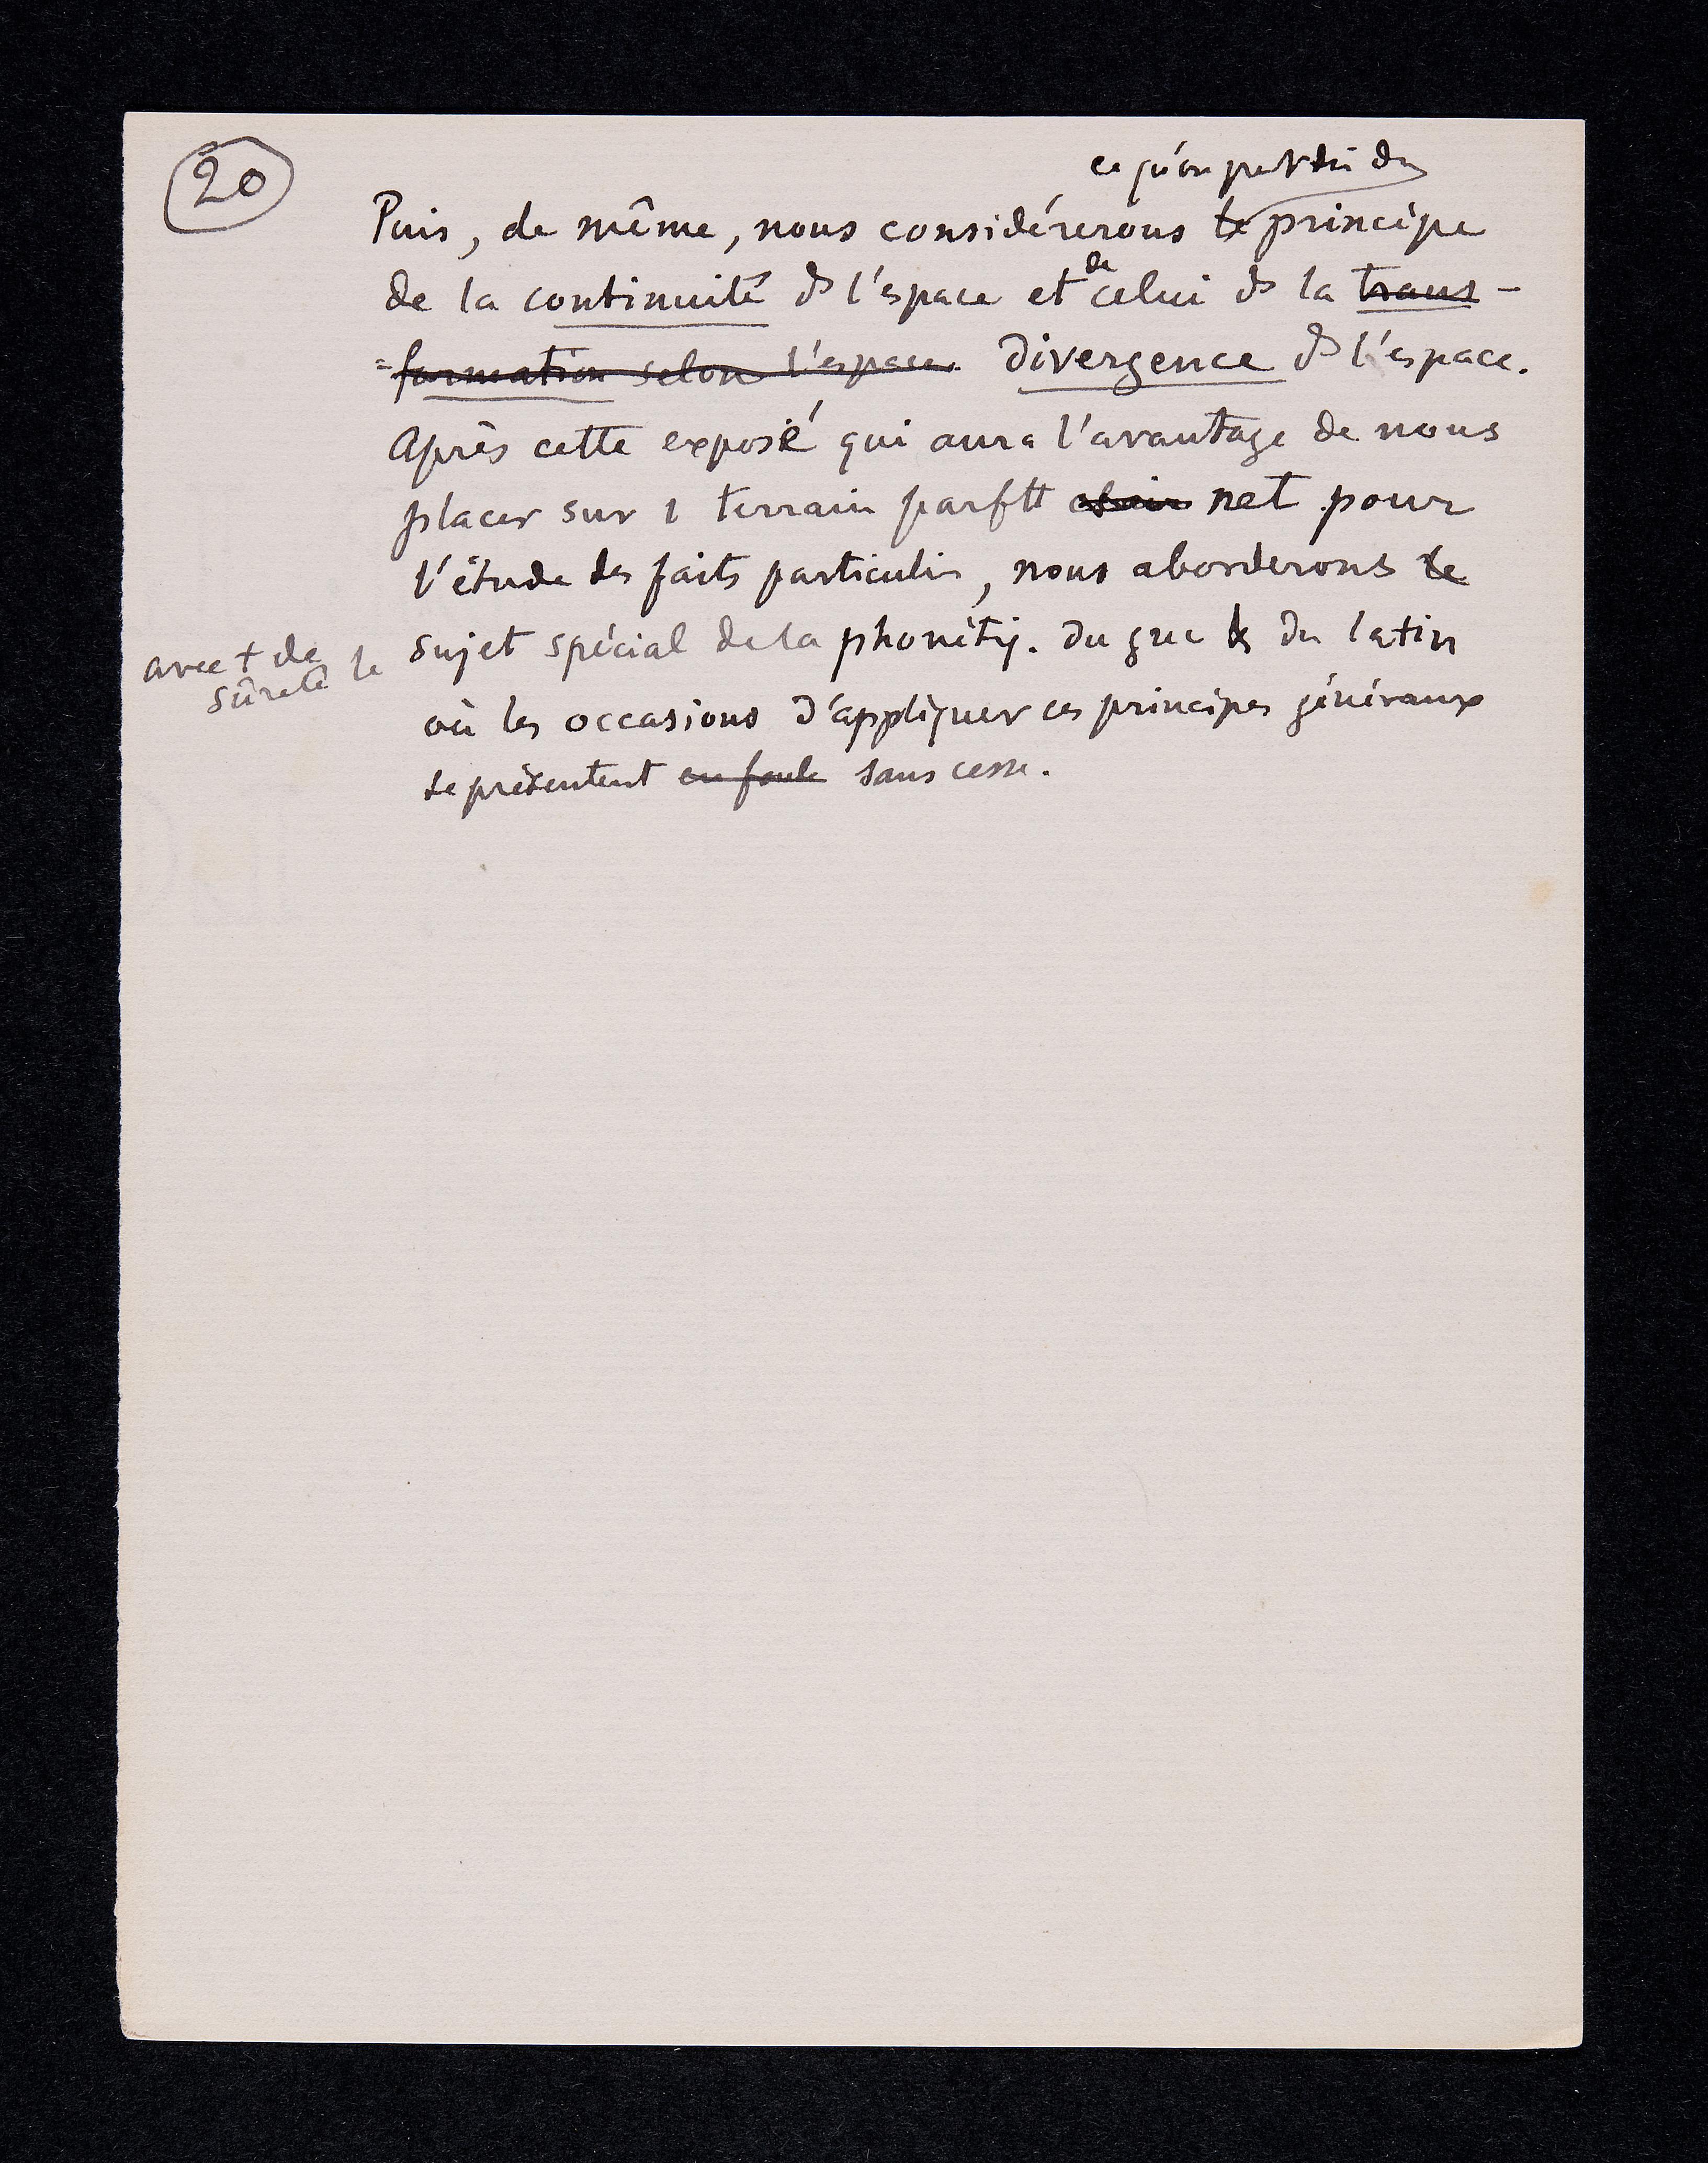 20
ce qu'on peut dire du
Puis, de même, nous considérerons le principe
de
de la continuité ds l'espace et celui ds la trans-
=formation selon l'espace. divergence ds l'espace.
Après cette exposé qui aura l'avantage de nous
placer sur 1 terrain parftt clair net pour
l'étude des faits particuliers, nous aborderons le
avec + de sûreté le
sujet spécial de la phonétiq. du grec & du latin
où les occasions d'appliquer ces principes généraux
se présentent en foule sans cesse.